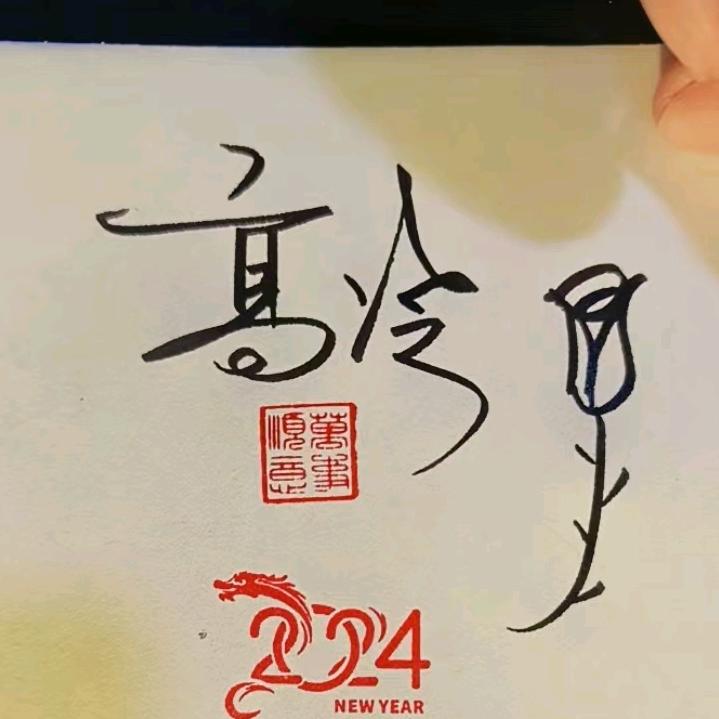 高冷
萬事
順意
2024
NEW YEAR